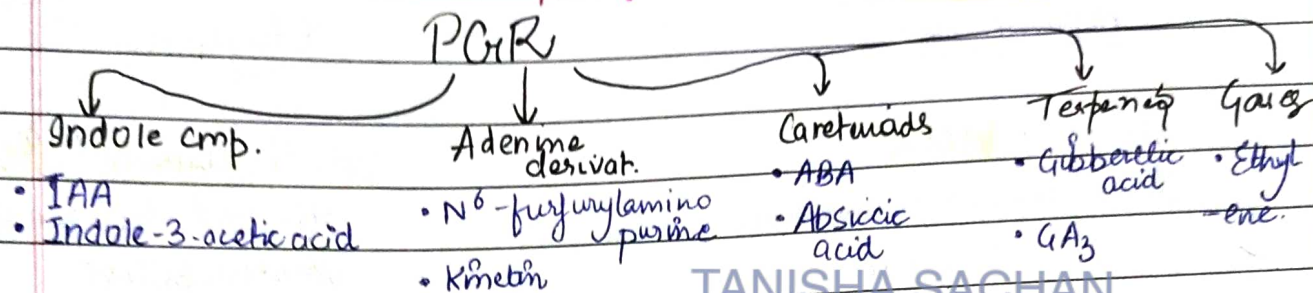 PGR
Indole cmp.
• IAA
• Indole-3-acetic acid
Adenine
derivat.
• N6-furfurylamino
purine
• Kinetin
Caretinoids
• ABA
• Absiccic
acid
Terpenes
• Gibberellic
acid
• GA3
Gases
• Ethyl
-ene.
TANISHA SACHAN